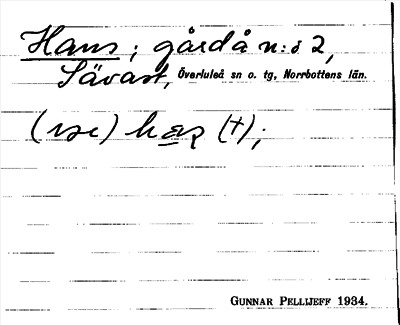 Hans; gård å n:o 2,
Sävast, Överluleå sn o. tg, Norrbottens län.
(†);
GUNNAR PELLIJEFF 1934.